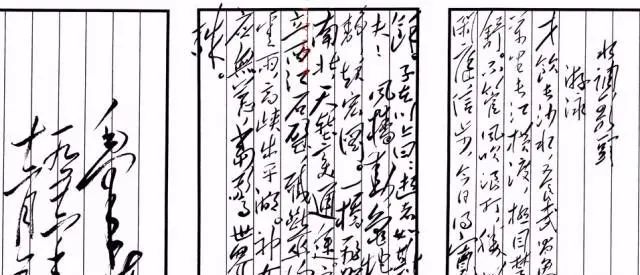 水调歌头
游泳
才饮长沙水,又食武昌
万里长江横渡,极目楚
舒。不管风吹浪打,胜
闲庭信步,今日得宽
馀。子在川上曰:逝者如斯
夫!风樯动,龟蛇
静,起宏图。一桥飞架
南北,天堑变通途
立西江石壁,截断巫
云雨,高峡出平湖。神女
应无恙,当惊世界
殊。
毛泽东
一九五六年
十二月